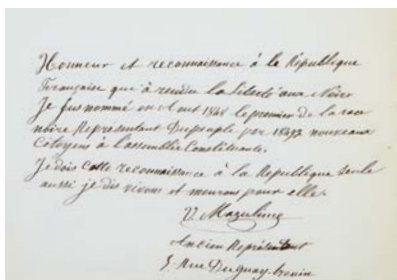 Honneur et reconnaissance à la République
Française qui à rendu la Liberté aux Noirs
Je fus nommé en Aout 1848 le premier de la race
noire Représentant Du peuple par nouveaux
Citoyens à l'assemblée Constituante.
Je dois cette reconnaissance à la République seule
aussi je dis vivons et mourons pour elle.
V. Mazuline
Ancien Représentant
5 rue Duguay-trouin